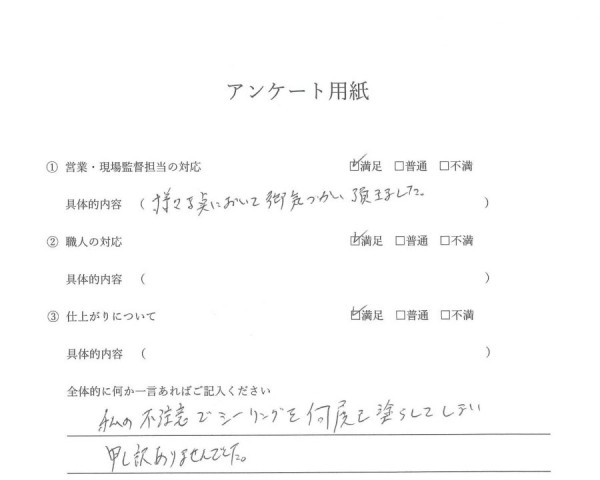 アンケート用紙
① 営業・現場監督担当の対応 ☑満足 □普通 □不満
具体的内容 ( 様々な点において御気づかい頂きました。 )
② 職人の対応 ☑満足 □普通 □不満
具体的内容 ( )
③ 仕上がりについて ☑満足 □普通 □不満
具体的内容 ( )
全体的に何か一言あればご記入ください
私の不注意でシーリングを何度も塗らしてしまい
申し訳ありませんでした。